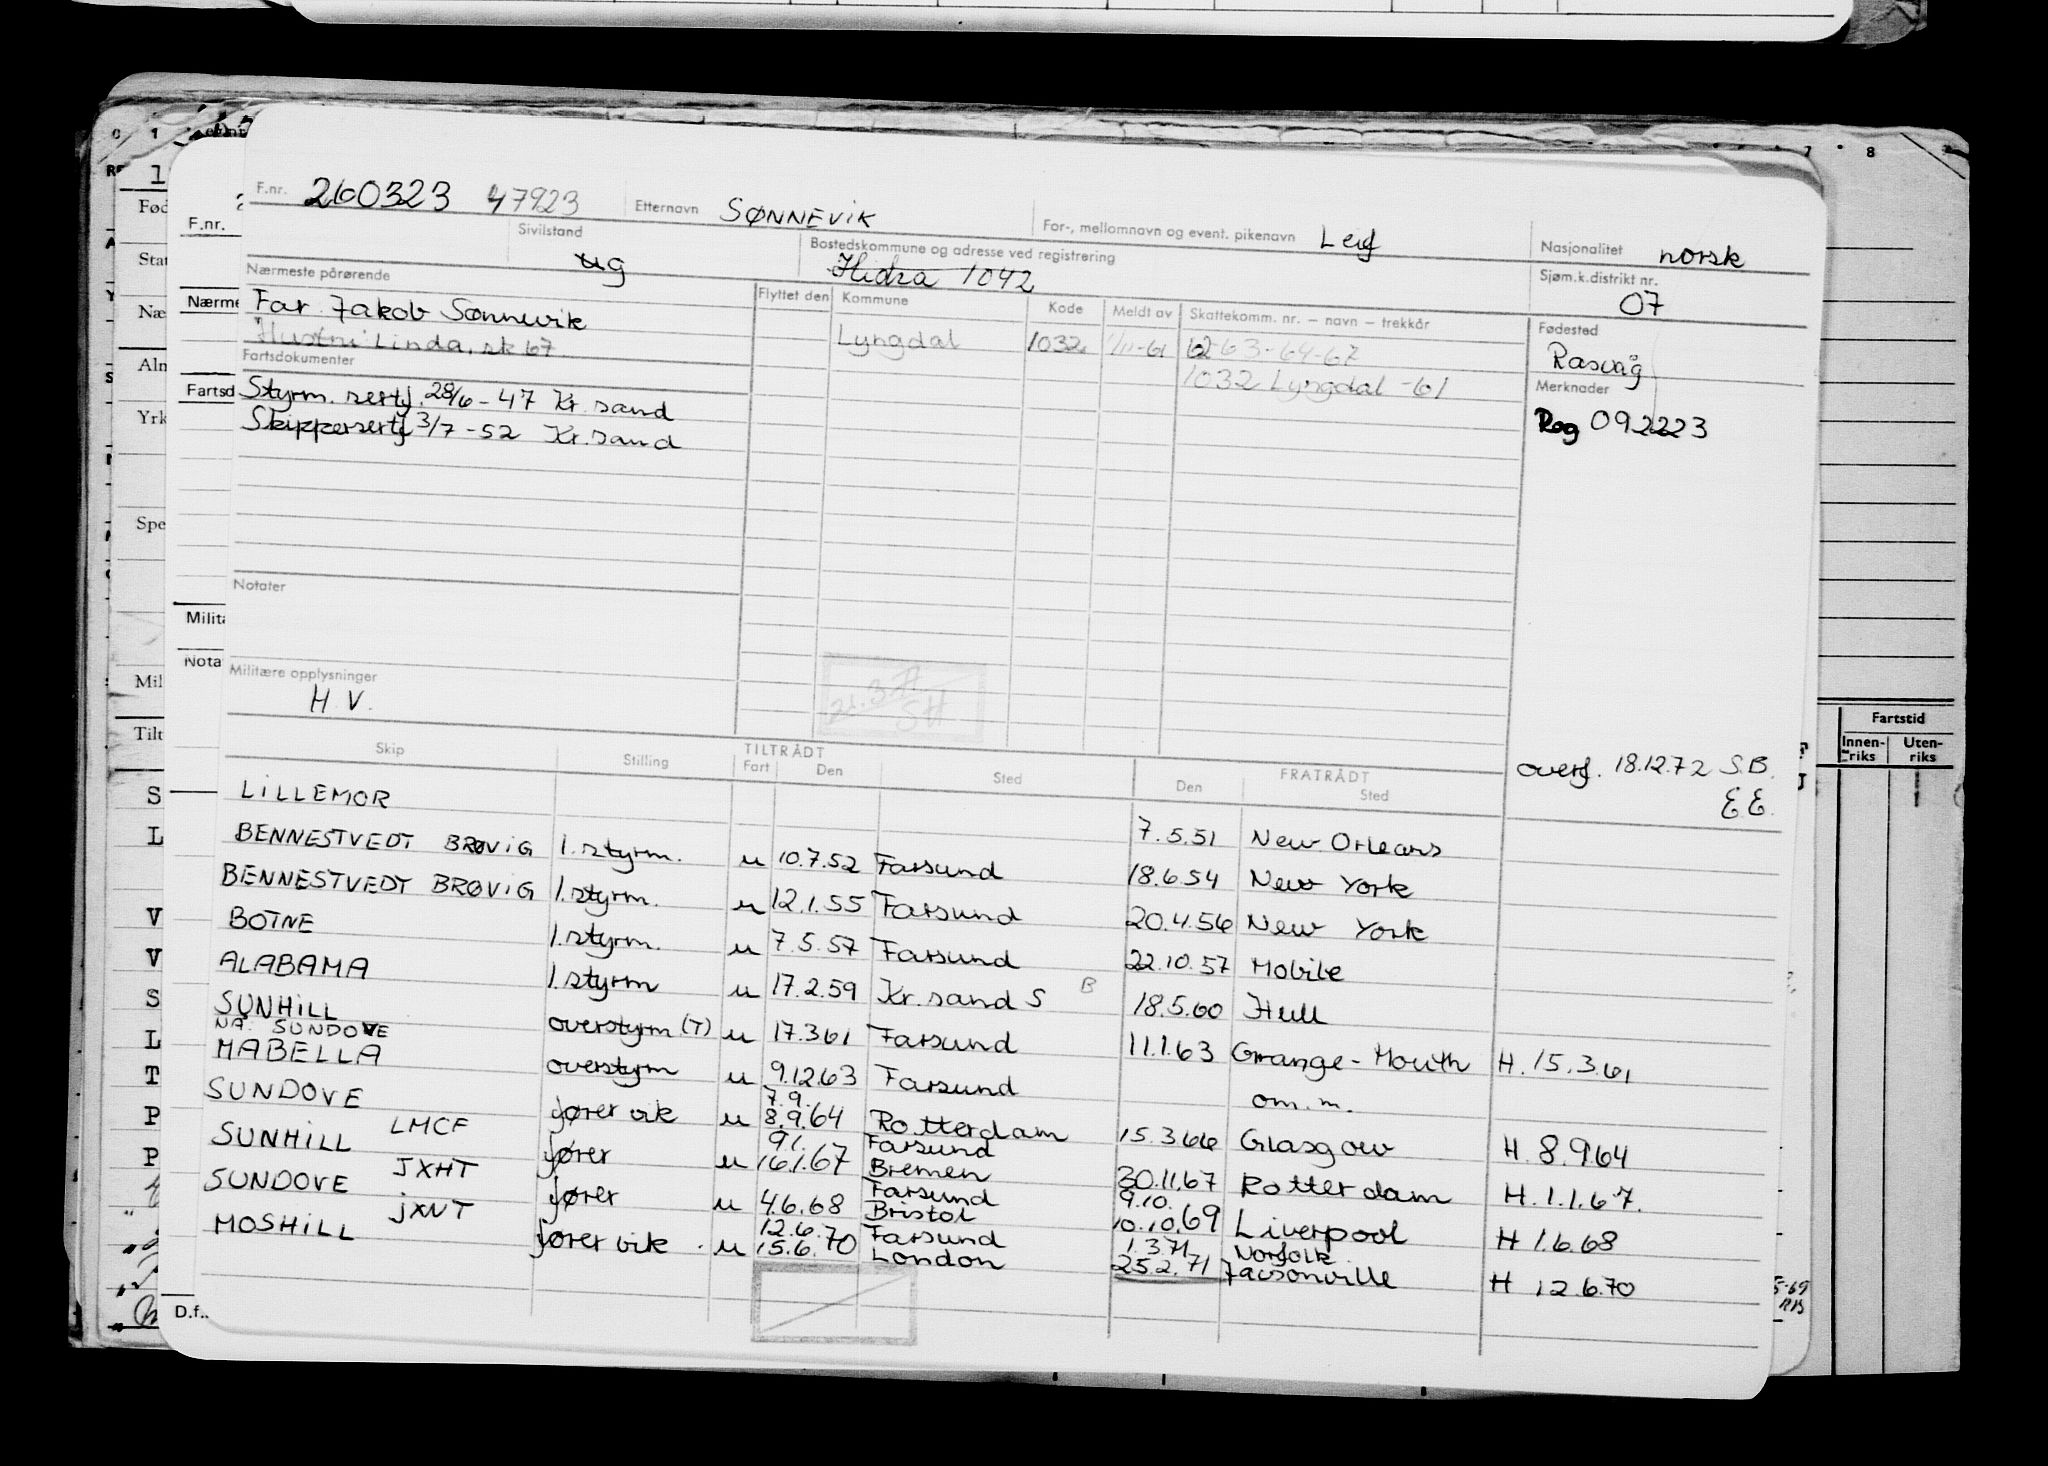 F.nr. 260323 47923 Etternavn SØNNEVIK For-, mellomnavn og event. pikenavn Leif Nasjonalitet norsk
Sivilstand ug Bostedskommune og adresse ved registrering Hidra 1042 Sjøm.k.distrikt nr. 07
Nærmeste pårørende Flyttet den Kommune Kode Meldt av Skattekomm. nr. – navn – trekkår Fødested
Far Jakob Sønnevik Lyngdal 1032 1/11-61 62-63-64-67 Rasvåg
Hustru Linda, sk 67 1032 Lyngdal -61
Fartsdokumenter Merknader
Styrm. sertf. 28/6-47 Kr. sand Reg 092223
Skippersertf 3/7-52 Kr. sand
Notater
Militære opplysninger
H.V.
21.3.71
SH
overf. 18.12.72 S.B.
EE.
TILTRÅDT FRATRÅDT
Skip Stilling Fart Den Sted Den Sted
LILLEMOR 7.5.51 New Orleans
BENNESTVEDT BRØVIG 1. styrm. u 10.7.52 Farsund 18.6.54 New York
BENNESTVEDT BRØVIG 1. styrm. u 12.1.55 Farsund 20.4.56 New York
BOTNE 1. styrm. u 7.5.57 Farsund 22.10.57 Mobile
ALABAMA 1. styrm u 17.2.59 Kr. sand S B 18.5.60 Hull
SUNHILL overstyrm (T) u 17.3.61 Farsund 11.1.63 Grange-Mouth H. 15.3.61
NÅ. SUNDOVE
MABELLA overstyrm u 9.12.63 Farsund om.m.
SUNDOVE fører vik u 7.9. 8.9.64 Rotterdam 15.3.66 Glasgow H. 8.9.64
SUNHILL LMCF fører u 9.1. 16.1.67 Farsund Bremen 30.11.67 Rotterdam H. 1.1.67.
SUNDOVE JXHT fører u 4.6.68 Farsund Bristol 9.10. 10.10.69 Liverpool H 1.6.68
MOSHILL JXNT fører vik. u 12.6. 15.6.70 Farsund London 1.3.71 25.2.71 Norfolk Jacsonville H 12.6.70
Fartstid
Innen-riks Uten-riks
F.nr.
Fød
Stat
Nærme
Næ
Alm
Fartsd
Yrk
Spe
Milit
Nota
Mil
Tilt
D.f.